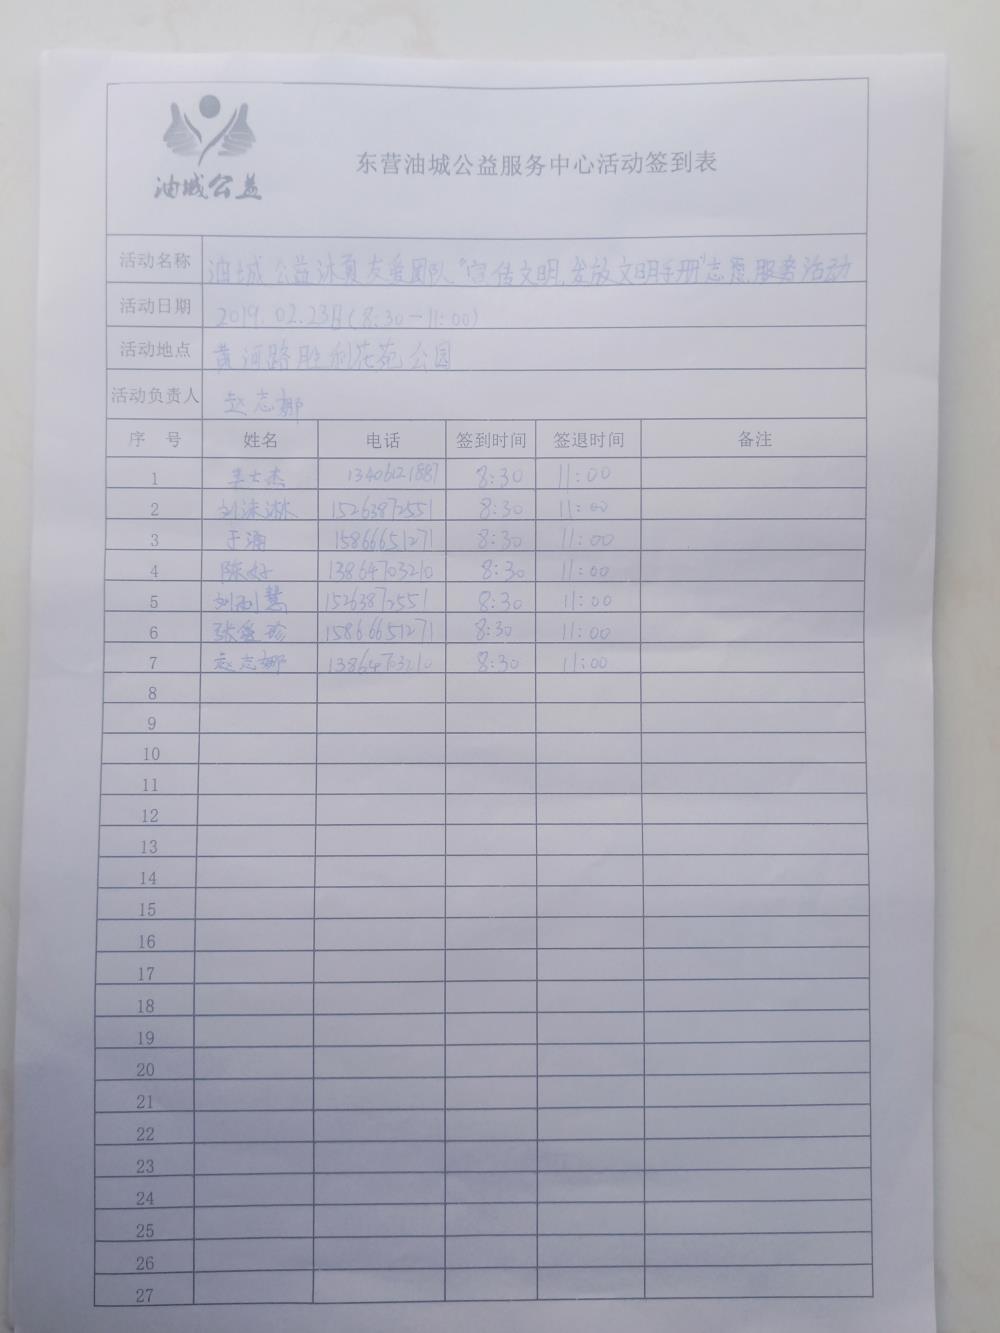 油城公益
东营油城公益服务中心活动签到表
活动名称 油城公益沐夏友爱团队"宣传文明,发放文明手册"志愿服务活动
活动日期 2019.02.23日(8:30-11:00)
活动地点 黄河路胜利花苑公园
活动负责人 赵志娜
序 号 姓名 电话 签到时间 签退时间 备注
1 士杰 13406121887 8:30 11:00
2 刘沫淋 15263872551 8:30 11:00
3 于涌 15866651271 8:30 11:00
4 陈好 13864703210 8:30 11:00
5 刘利慧 15263872551 8:30 11:00
6 张爱珍 15866651271 8:30 11:00
7 赵志娜 13864703210 8:30 11:00
8
9
10
11
12
13
14
15
16
17
18
19
20
21
22
23
24
25
26
27